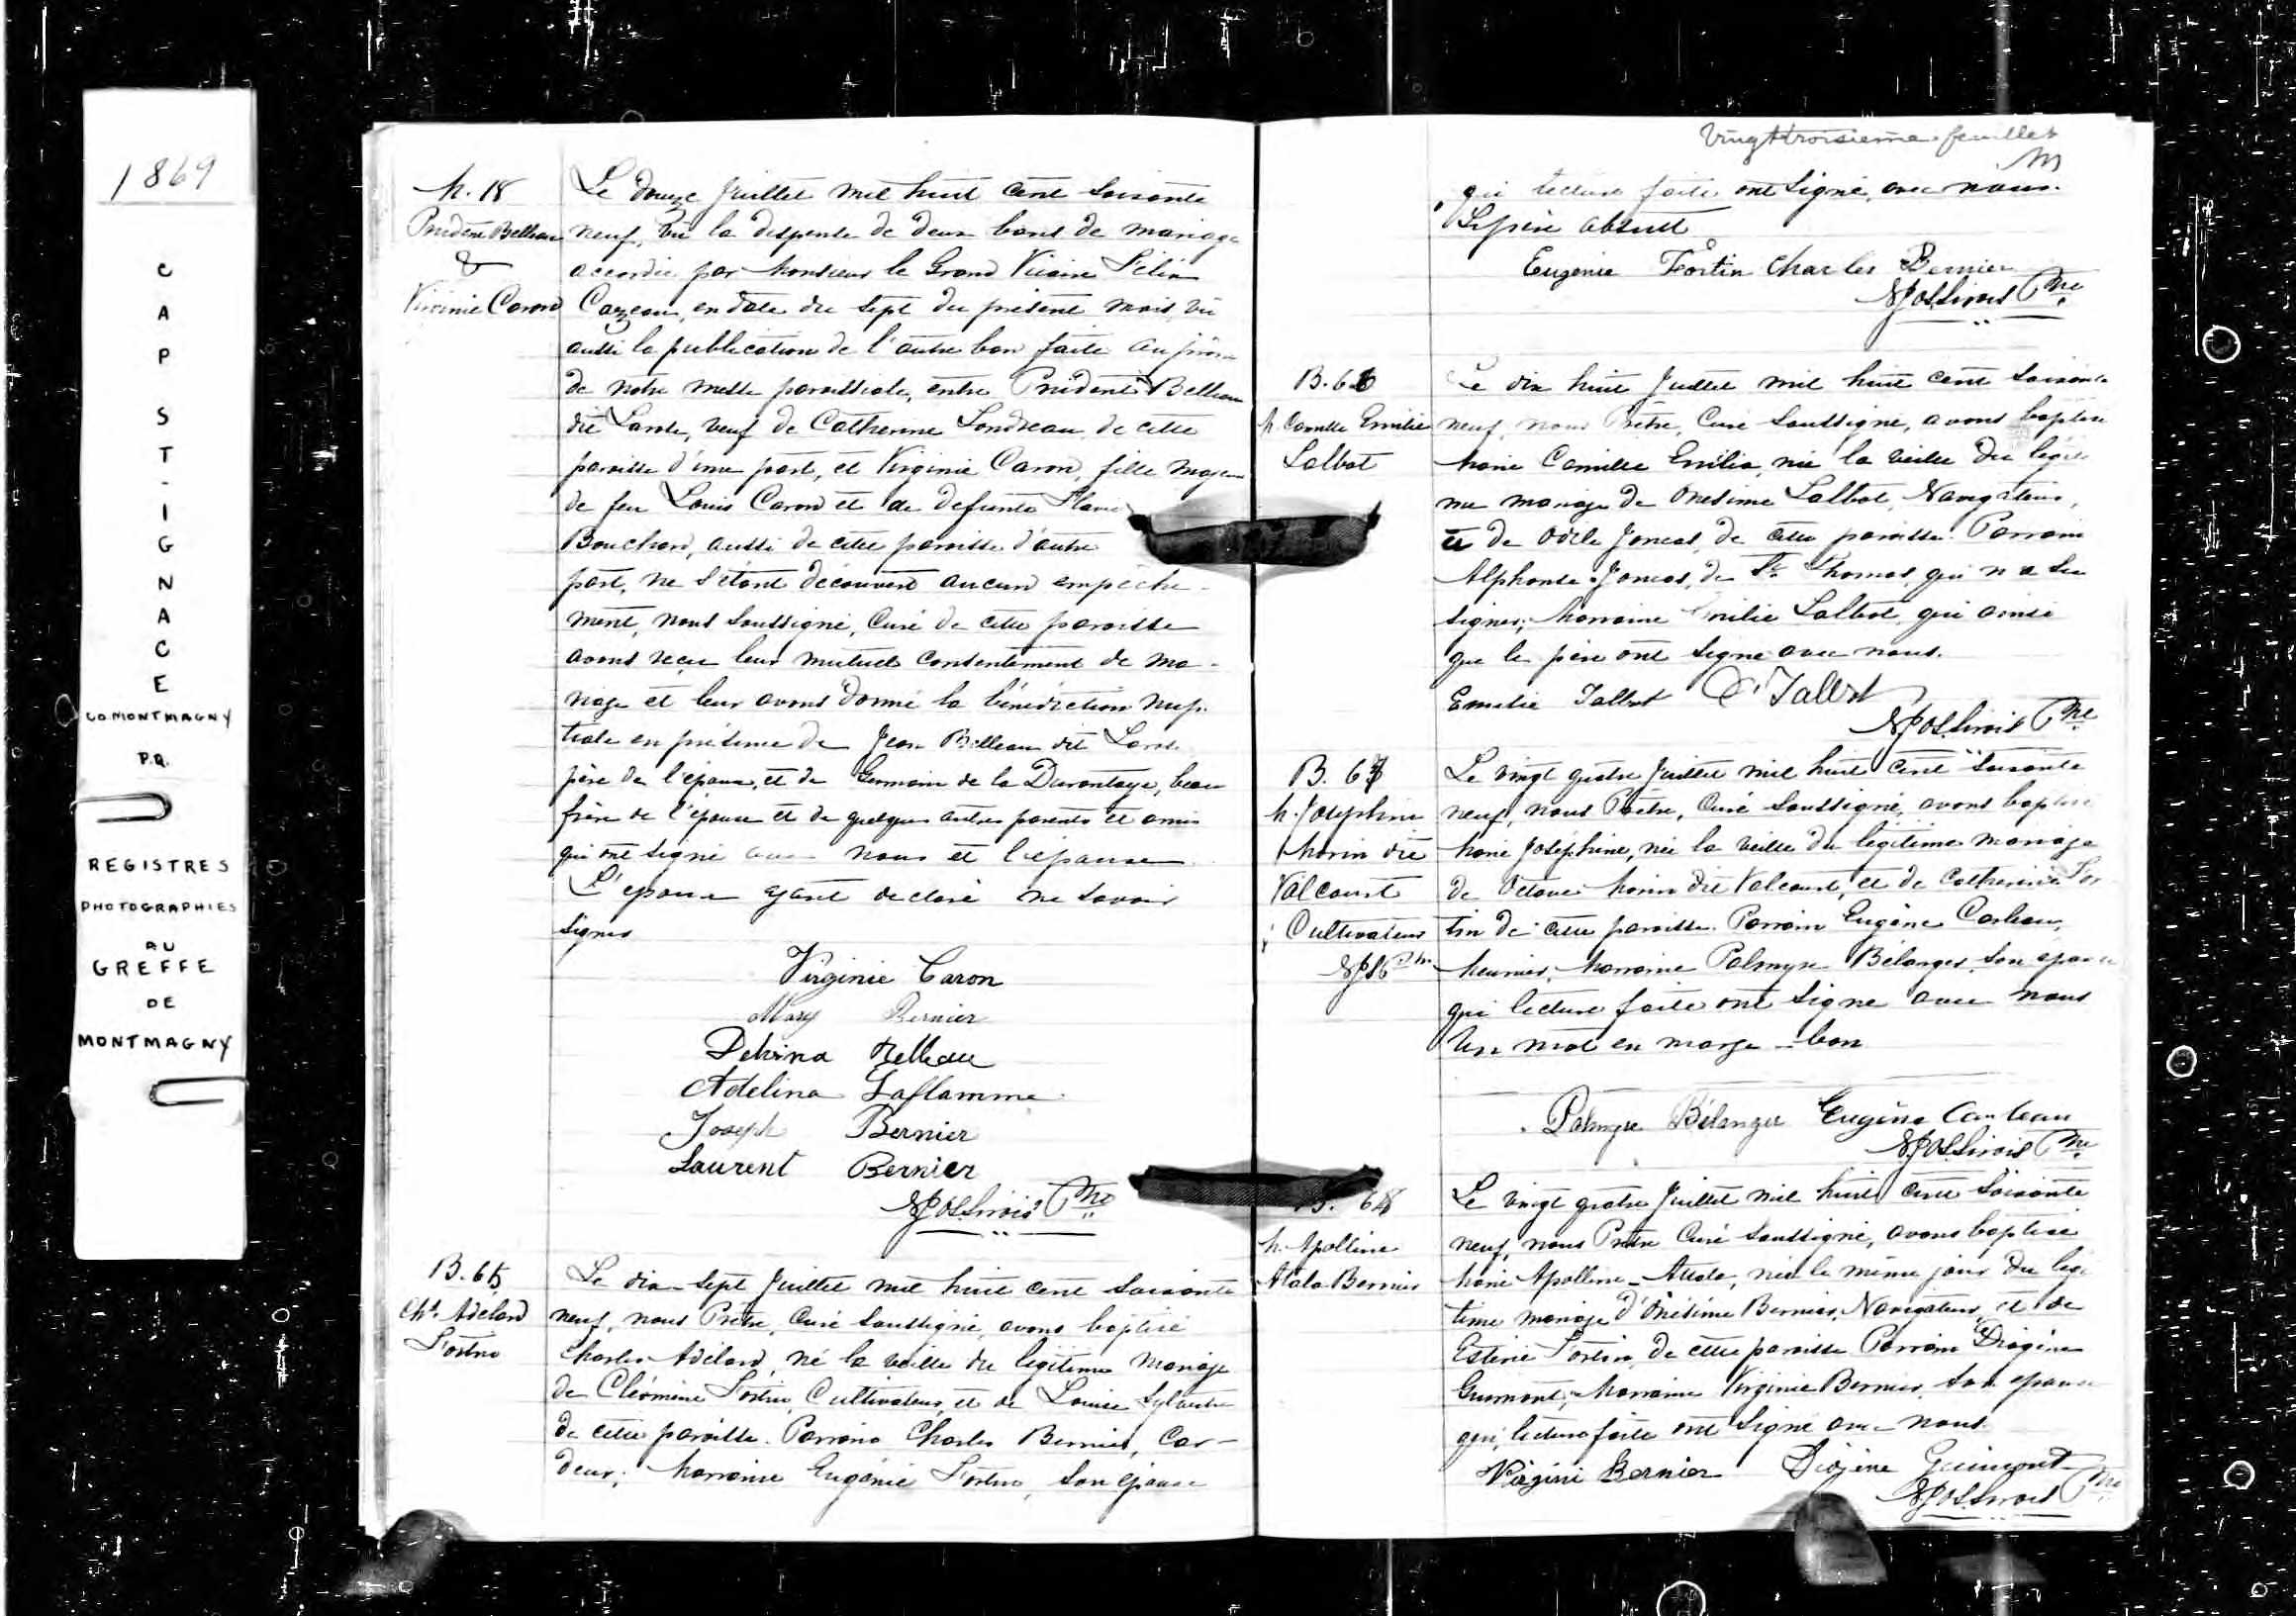 1869
CAP ST-IGNACE
CO. MONTMAGNY
P.Q.
REGISTRES
PHOTOGRAPHIES
AU
GREFFE
DE
MONTMAGNY
M. 18
Prudent Belleau
&
Virginie Caron
Le douze Juillet mil huit cent soixante
neuf, vu la dispense de deux bans de mariage
accordée par Monsieur le Grand Vicaire Félix
Cazeau, en date du sept du présent mois, vu
aussi la publication de l'autre ban faite au prône
de notre messe paroissiale, entre Prudent Belleau
dit Larose, veuf de Catherine Landreau de cette
paroisse d'une part, et Virginie Caron, fille majeure
de feu Louis Caron et de defunte
Bouchard, aussi de cette paroisse d'autre
part, ne s'étant découvert aucun empêche-
ment, nous soussigné, Curé de cette paroisse
avons reçu leur mutuel consentement de ma-
riage et leur avons donné la bénédiction nup-
tiale en présence de Jean Belleau dit Larose
père de l'époux, et de Germain de la Durantaye, beau
frère de l'épouse et de quelques autres parents et amis
qui ont signé avec nous et l'épouse
L'époux ayant declaré ne savoir
signer
Virginie Caron
Mary Bernier
Delvina Belleau
Adelina Laflamme
Joseph Bernier
Laurent Bernier
NJOSirois Ptre
B. 65
Chs Adelard
Fortin
Le dix-sept Juillet mil huit cent soixante
neuf, nous Prêtre, Curé soussigné, avons baptisé
Charles Adélard, né la veille du légitime mariage
de Cléomine Fortin, Cultivateur, et de Louise Sylvestre
de cette paroisse. Parrain Charles Bernier, Car-
deur; Marraine Eugénie Fortin, son épouse
Vingt troisieme feuillet
qui lecture faite ont signé avec nous.
Le père absent
Eugenie Fortin Charles Bernier
NJOSirois Ptre
B. 66
M. Camille Emilie
Talbot
Le dix huit Juillet mil huit cent soixante
neuf, nous Prêtre, Curé soussigné, avons baptisé
Marie Camille Emilia, née la veille du légiti
me mariage de Onesime Talbot, Navigateur,
et de Odile Joncas, de cette paroisse. Parrain
Alphonse Joncas, de St. Thomas, qui n'a su
signer; Marraine Emilie Talbot, qui ainsi
que le père ont signé avec nous.
Emelie Talbot O. Talbot
NJOSirois Ptre
B. 67
M. Josephine
Morin dit
Valcourt
Cultivateur
NJOS Ptre
Le vingt quatre Juillet mil huit cent soixante
neuf, nous Prêtre, Curé soussigné, avons baptisé
Marie Joséphine, née la veille du légitime mariage
de Octave Morin dit Valcourt, et de Catherine For
tin de cette paroisse. Parrain Eugène Carbeau,
Meunier; Marraine Palmyre Bélanger, son épouse
qui lecture faite ont signé avec nous
Un mot en marge bon
Palmyre Bélanger Eugène Carbeau
NJOSirois Ptre
B. 68
M. Apolline
Atala Bernier
Le vingt quatre Juillet mil huit cent soixante
neuf, nous Prêtre Curé soussigné, avons baptisé
Marie Apolline-Attala, née le même jour du légi
time mariage d'Onésime Bernier, Navigateur, et de
Esterie Fortin, de cette paroisse Parrain Diogène
Guimont; Marraine Virginie Bernier, son épouse
qui, lecture faite ont signé avec nous.
Virgini Bernier Diojène Guimont
NJOSirois Ptre